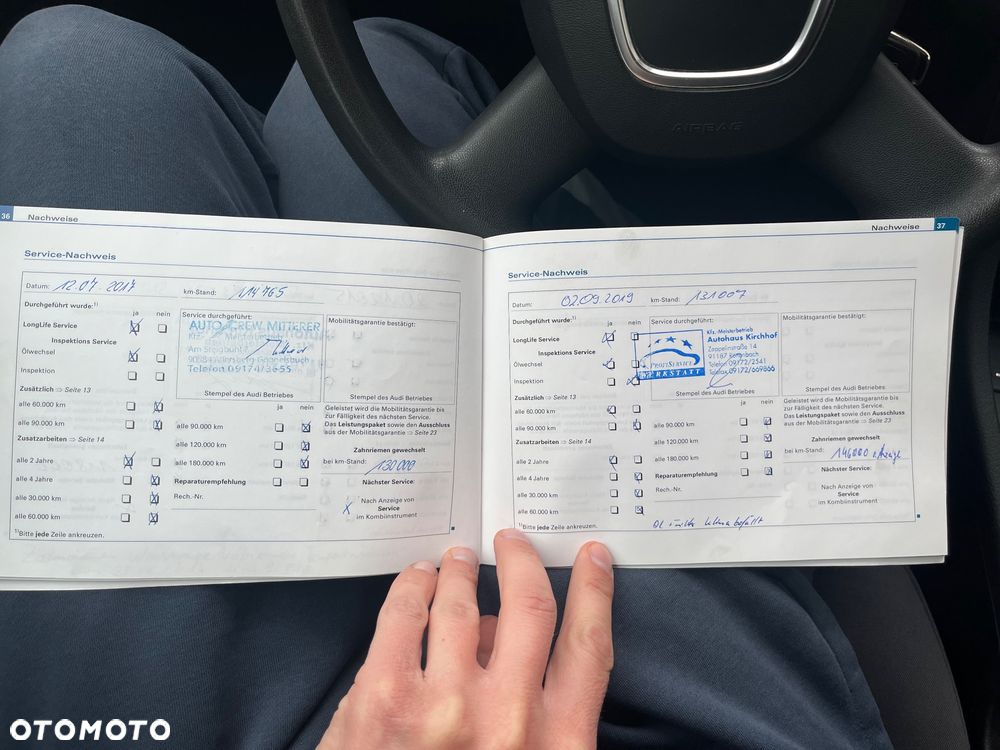 AIRBAG
36 Nachweise
Service-Nachweis
Datum: km-Stand: 114765
Durchgeführt wurde:¹⁾
ja nein
LongLife Service
Inspektions Service
Ölwechsel
Inspektion
Zusätzlich ⇒ Seite 13
alle 60.000 km
alle 90.000 km
Zusatzarbeiten ⇒ Seite 14
alle 2 Jahre
alle 4 Jahre
alle 30.000 km
alle 60.000 km
¹⁾Bitte jede Zeile ankreuzen.
Service durchgeführt:
AUTO CREW MITTERER
Kfz.-Meisterbetrieb
Telefon 09174/3655
Stempel des Audi Betriebes
ja nein
alle 90.000 km
alle 120.000 km
alle 180.000 km
Reparaturempfehlung
Rech.-Nr.
Mobilitätsgarantie bestätigt:
Stempel des Audi Betriebes
Geleistet wird die Mobilitätsgarantie bis
zur Fälligkeit des nächsten Service.
Das Leistungspaket sowie den Ausschluss
aus der Mobilitätsgarantie ⇒ Seite 23
Zahnriemen gewechselt
bei km-Stand: 130000
Nächster Service:
X Nach Anzeige von
Service
im Kombiinstrument
Nachweise 37
Service-Nachweis
Datum: 02.09.2019 km-Stand: 131007
Durchgeführt wurde:¹⁾
ja nein
LongLife Service
Inspektions Service
Ölwechsel
Inspektion
Zusätzlich ⇒ Seite 13
alle 60.000 km
alle 90.000 km
Zusatzarbeiten ⇒ Seite 14
alle 2 Jahre
alle 4 Jahre
alle 30.000 km
alle 60.000 km
¹⁾Bitte jede Zeile ankreuzen.
Service durchgeführt:
PROFI SERVICE
WERKSTATT
Kfz.-Meisterbetrieb
Autohaus Kirchhof
Zeppelinstraße 14
91187 Röttenbach
Telefon 09172/2541
Telefax 09172/669866
Stempel des Audi Betriebes
ja nein
alle 90.000 km
alle 120.000 km
alle 180.000 km
Reparaturempfehlung
Rech.-Nr.
Mobilitätsgarantie bestätigt:
Stempel des Audi Betriebes
Geleistet wird die Mobilitätsgarantie bis
zur Fälligkeit des nächsten Service.
Das Leistungspaket sowie den Ausschluss
aus der Mobilitätsgarantie ⇒ Seite 23
Zahnriemen gewechselt
bei km-Stand: 146000 n. Anzeige
Nächster Service:
Nach Anzeige von
Service
im Kombiinstrument
OTOMOTO